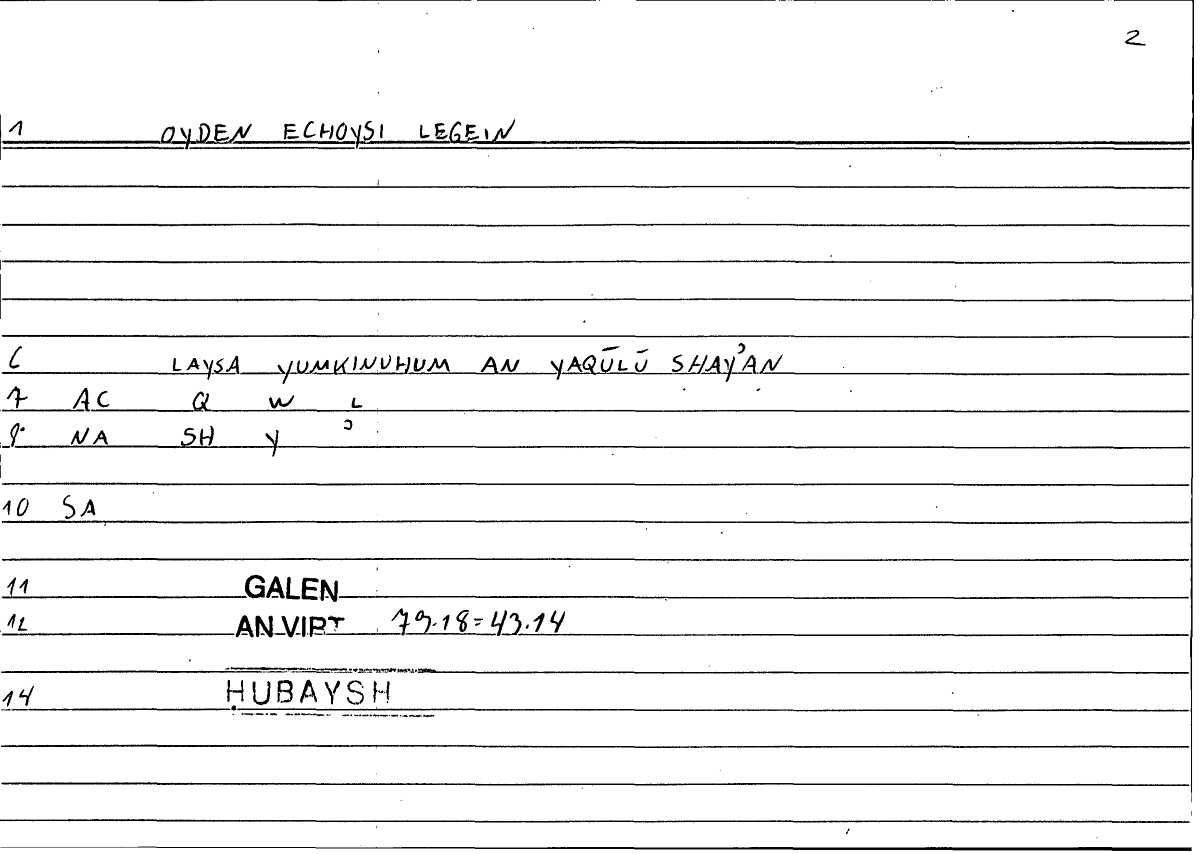 2
1 OYDEN ECHOYSI LEGEIN
6 LAYSA YUMKINUHUM AN YAQŪLŪ SHAYʾAN
7 AC Q W L
8 NA SH Y ʾ
10 SA
11 GALEN
12 AN VIRT 79.18=43.14
14 ḤUBAYSH